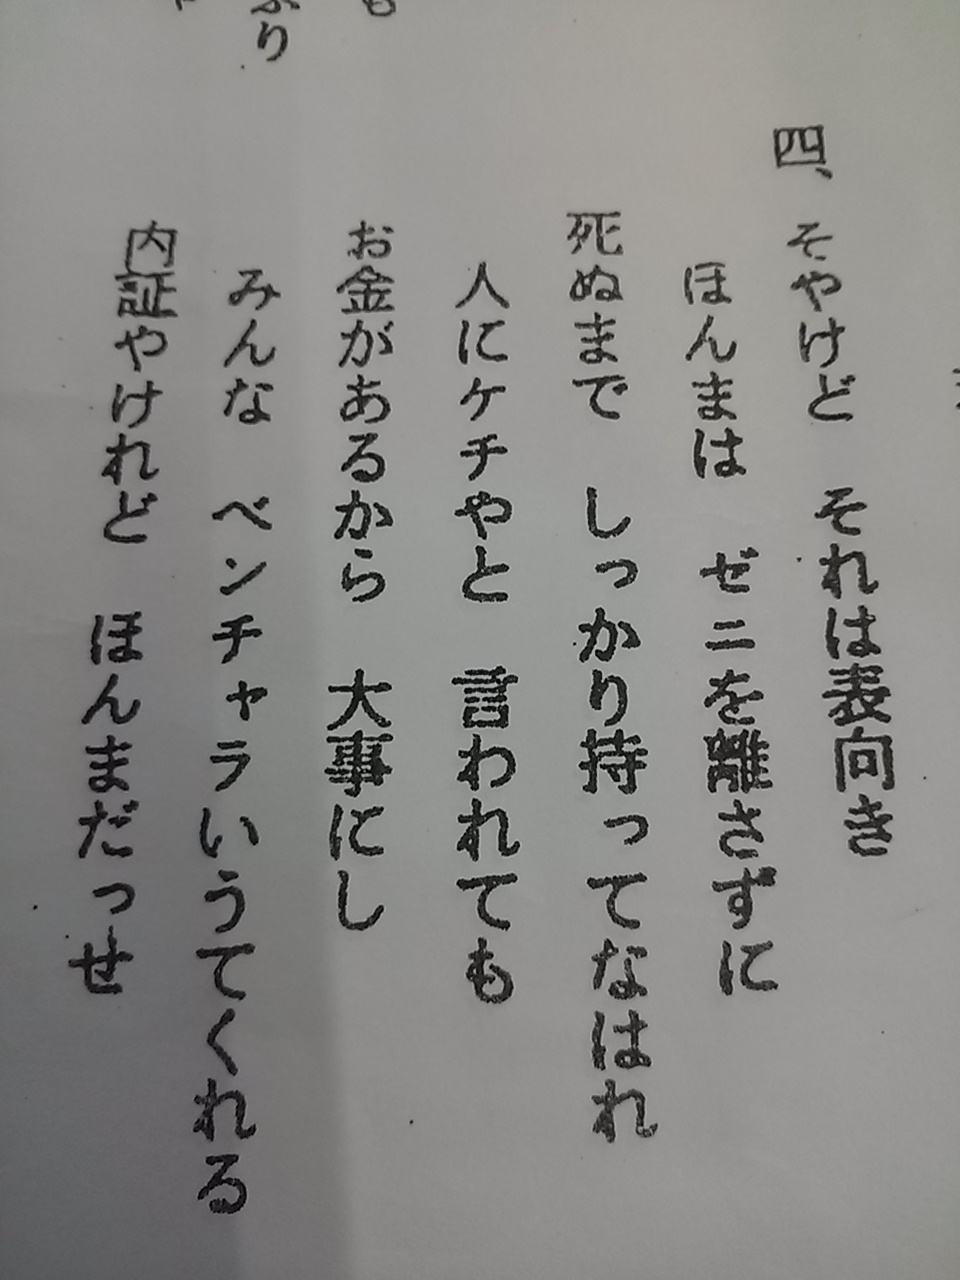 四、そやけど それは表向き
ほんまは ゼニを離さずに
死ぬまで しっかり持ってなはれ
人にケチやと 言われても
お金があるから 大事にし
みんな ベンチャラいうてくれる
内証やけれど ほんまだっせ
も
り